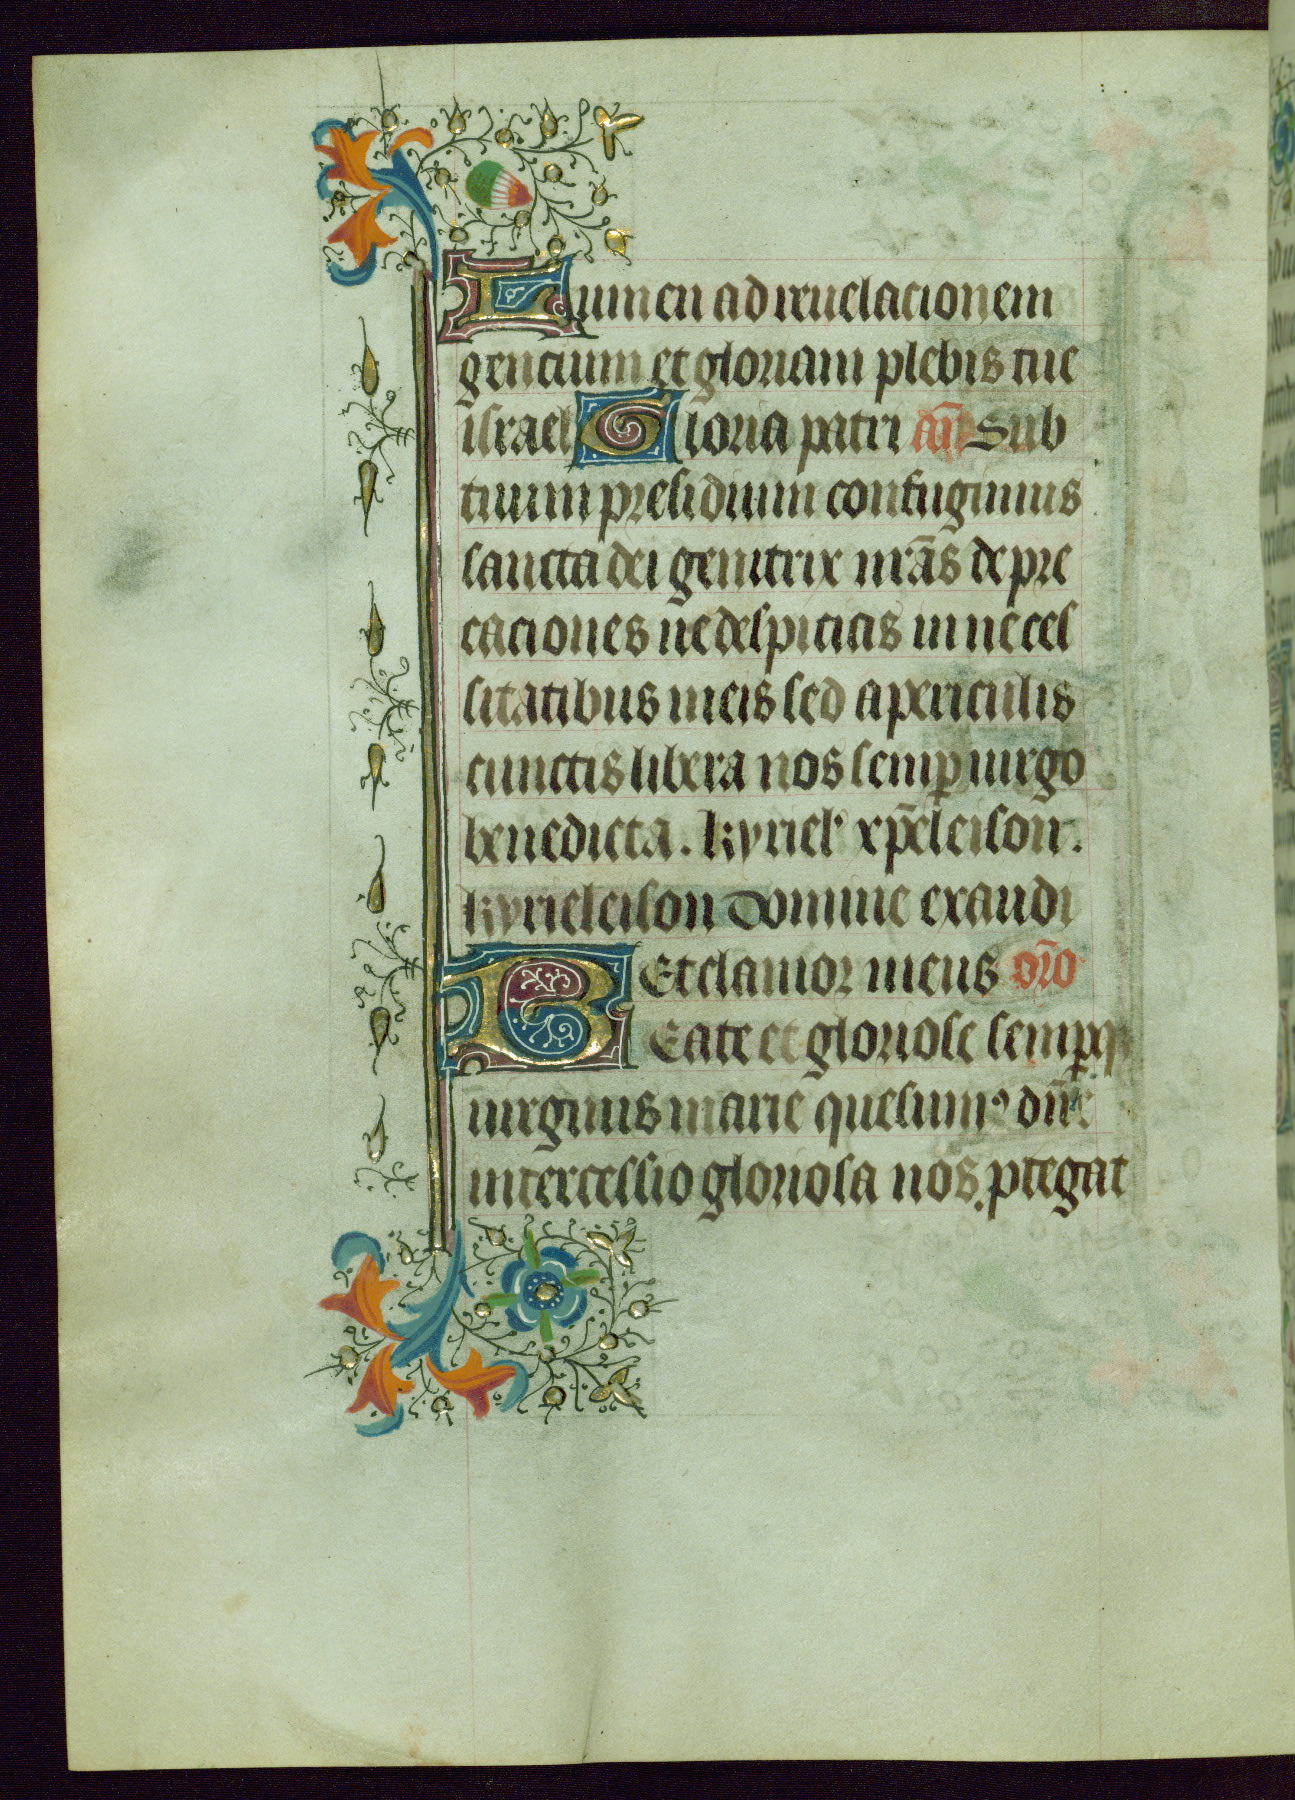 Lumen ad reuelacionem
gencium et gloriam plebis tue
israel Gloria patri an̄ Sub
tuum presidium confugimus
sancta dei genitrix nr̄ās depre
caciones ne despicias in neces
sitatibus meis sed a periculis
cunctis libera nos semꝑ uirgo
benedicta. kyriel' xp̄eleison.
kyrieleison Domine exaudi
Et clamor meus or̄o
BEate et gloriose semꝑqꝫ
uirginis marie quesumꝰ dn̄e
intercessio gloriosa nos ꝓtegat